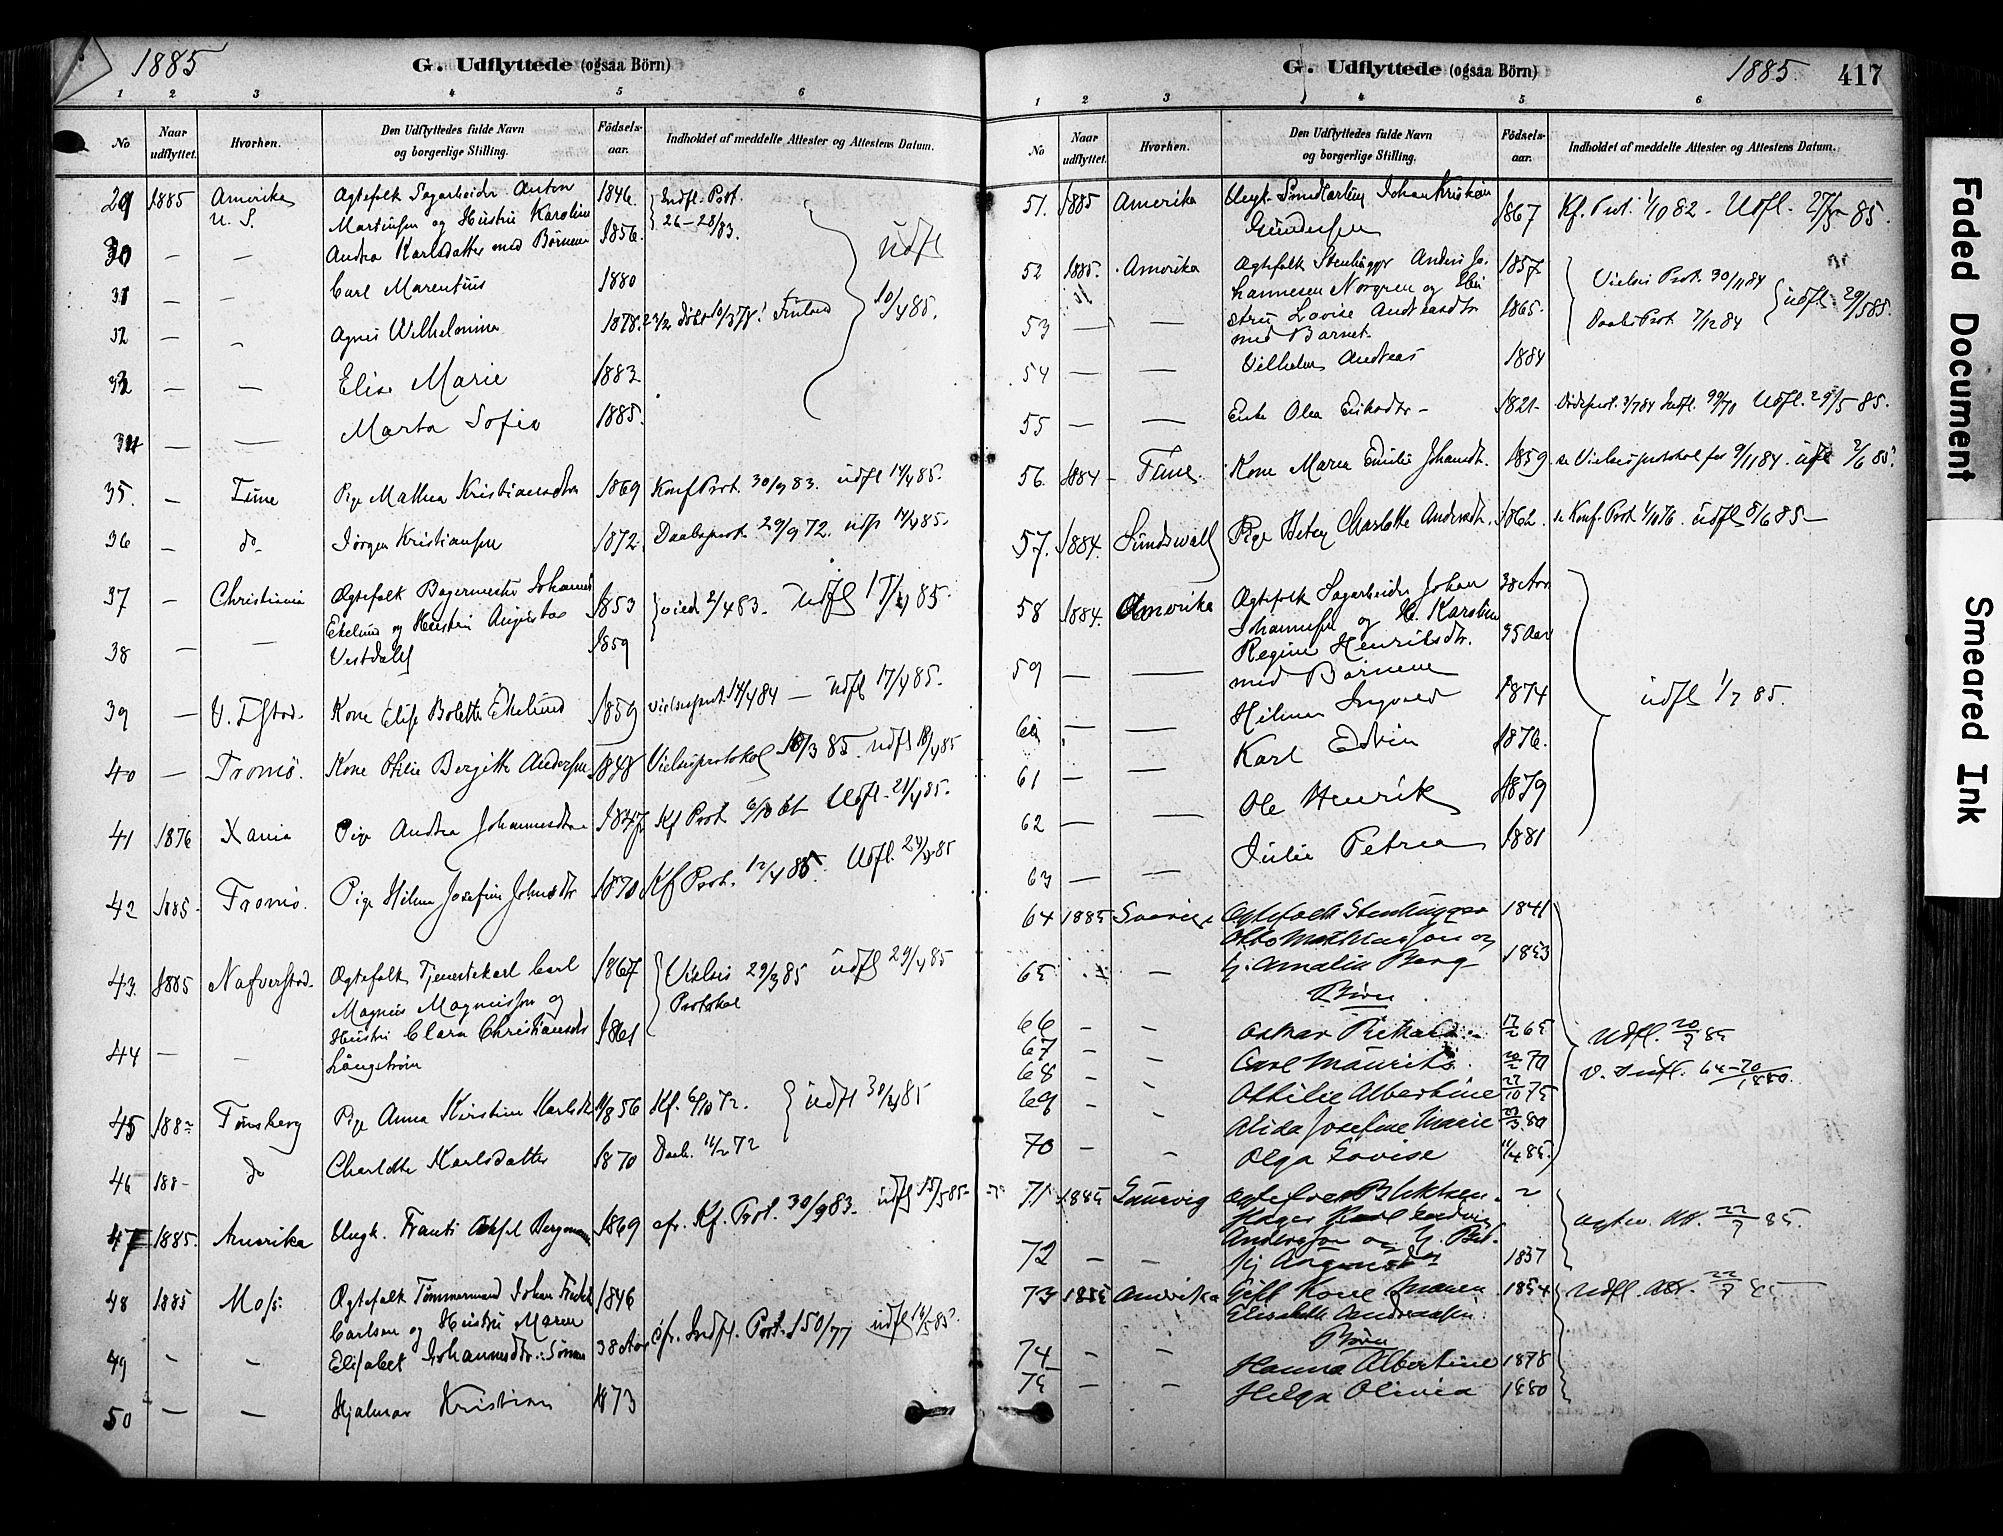 1885
G. Udflyttede (ogsaa Börn)
1 2 3 4 5 6
No
Naar udflyttet.
Hvorhen.
Den Udflyttedes fulde Navn og borgerlige Stilling.
Födsels-aar.
Indholdet af meddelte Attester og Attestens Datum.
29 1885 Amerika Ægtefolk Sagarbeider Anton 1846 Indfl. Prot.
U. S. Martinsen og Hustru Karoline 26-28/83.
30 — — Andrea Karlsdatter med Börnene 1856. Udfl
31 — — Carl Marentius 1880 10/4 85.
32 — — Agnes Wilhelmine 1878.
33 — — Elise Marie 1883
34 — — Marta Sofie 1885.
35. — Tune Pige Mathea Kristiansdtr 1869 Konf Prot. 30/9 83. udfl 14/4 85.
36 — do Jörgen Kristiansen 1872. Daabsprot. 29/9 72. udfl 14/4 85.
37 — Christiania Ægtefolk Bagermester Johannes 1853 viede 2/4 83. Udfl 17/4 85
Ekelund og Hustru Augusta
38 — — Vestdahl 1859
39 — Kone Elise Bolette Ekelund 1859 Vielsesprot. 14/4 84 — Udfl 17/4 85.
40 — Tromö. Kone Otilie Bergitte Andersen 1848 Vielsesprotokol 18/3 85. udfl 18/4 85
41 1876 Xania Pige Andrea Johannesdtr 1847 Kf Prot 6/10 61 Udfl. 21/4 85.
42 1885 Tromö. Pige Hilma Josefine Johnsdtr 1870 Kf Prot. 12/4 85. Udfl. 24/4 85
43. 1885 Nafverstad. Ægtefolk Tjenestekarl Carl 1867 Vielses 29/3 85 udfl 29/4 85
Magnus Magnusson og Protokol
Hustru Clara Christiansdtr 1861
44 — — Långström
45 188 Tönsberg Pige Anna Kirstine Karlsdtr 1856 Kf. 6/10 72. udfl 30/4 85
46 188 do Charlotte Karlsdatter 1870 Daab. 11/2 72
47 1885. Amerika Ungk. Frants Bergman 1869 cfr. Kf. Prot. 30/9 83. udfl 15/5 85
48 1885 Moss. Ægtefolk Tömmermand Johan Fredrik 1846
Carlsen og Hustru Maren cfr. Indfl. Prot. 150/77 udfl 19/5 85
49 — — Elisabet Johannesdtr: Sönnen 38 Aar
50 — — Hjalmar Kristian 1873
G. Udflyttede (ogsaa Börn)
1885 417
1 2 3 4 5 6
No
Naar udflyttet.
Hvorhen.
Den Udflyttedes fulde Navn og borgerlige Stilling.
Födsels-aar.
Indholdet af meddelte Attester og Attestens Datum.
51. 1885 Amerika Ungk. Johan Kristian 1867 Kf. Prot. 1/10 82. Udfl. 27/5 85.
Gundersen
52 1885. Amerika Ægtefolk Stenhugger Anders Jo- 1857 Vielses Prot. 30/11 84
hannesen Norgren og Hu- udfl. 29/5 85.
53 — — stru Lovise Andreasdtr 1865. Daabs Prot. 7/12 84
med Barnet
54 — — Vilhelm Andreas 1884
55 — — Enke Olea Eriksdtr — 1821 Udfl. 29/5 85.
56. 1884 Tune. Kone Maren Emilie Johansdt. 1859. se Vielsesprotokol for 9/11 84. udfl 2/6 85.
57. 1884. Sundswall Pige Betsy Charlotte Andersdt. 1862. se Konf. Prot 1/10 76. udfl 8/6 85 —
58 1884. Amerika Ægtefolk Sagarbeider Johan 38 Aar
Johannesen og H. Karoline
Regine Henriksdtr. 35 Aar
59 — — med Börnene
Hilmar Ingvald 1874 udfl 1/7 85.
60 — — Karl Edvin 1876.
61 — — Ole Henrik 1879
62 — — Julie Petrea 1881
63 — —
64 1885 Sverige Ægtefolk Stenhugger 1841
Otto Mathiasson og
65 — — H. Amalia Berg 1853
Börn
66 — — Oskar Rikard 17/2 65 Udfl. 20/7 85
67 — — Carl Maurits 20/2 70 v. Indfl. 64-70/1880.
68 Ottilie Albertine 27/10 75
69 — — Alida Josefine Marie 80
70 — — Olga Lovise 11/4 85.
71 1885 Ægtefolk Blikksm. Agtev. Att. 22/7 85.
Andersson og H.
72 — — 1837
73 1885 Amerika Gift Kone Maren 1854 Udfl. Att. 22/7 85
Elisabeth Andreassen
Börn
74 — — Hanna Albertine 1878
75 — — Helga Olivia 1880
Faded Document
Smeared Ink